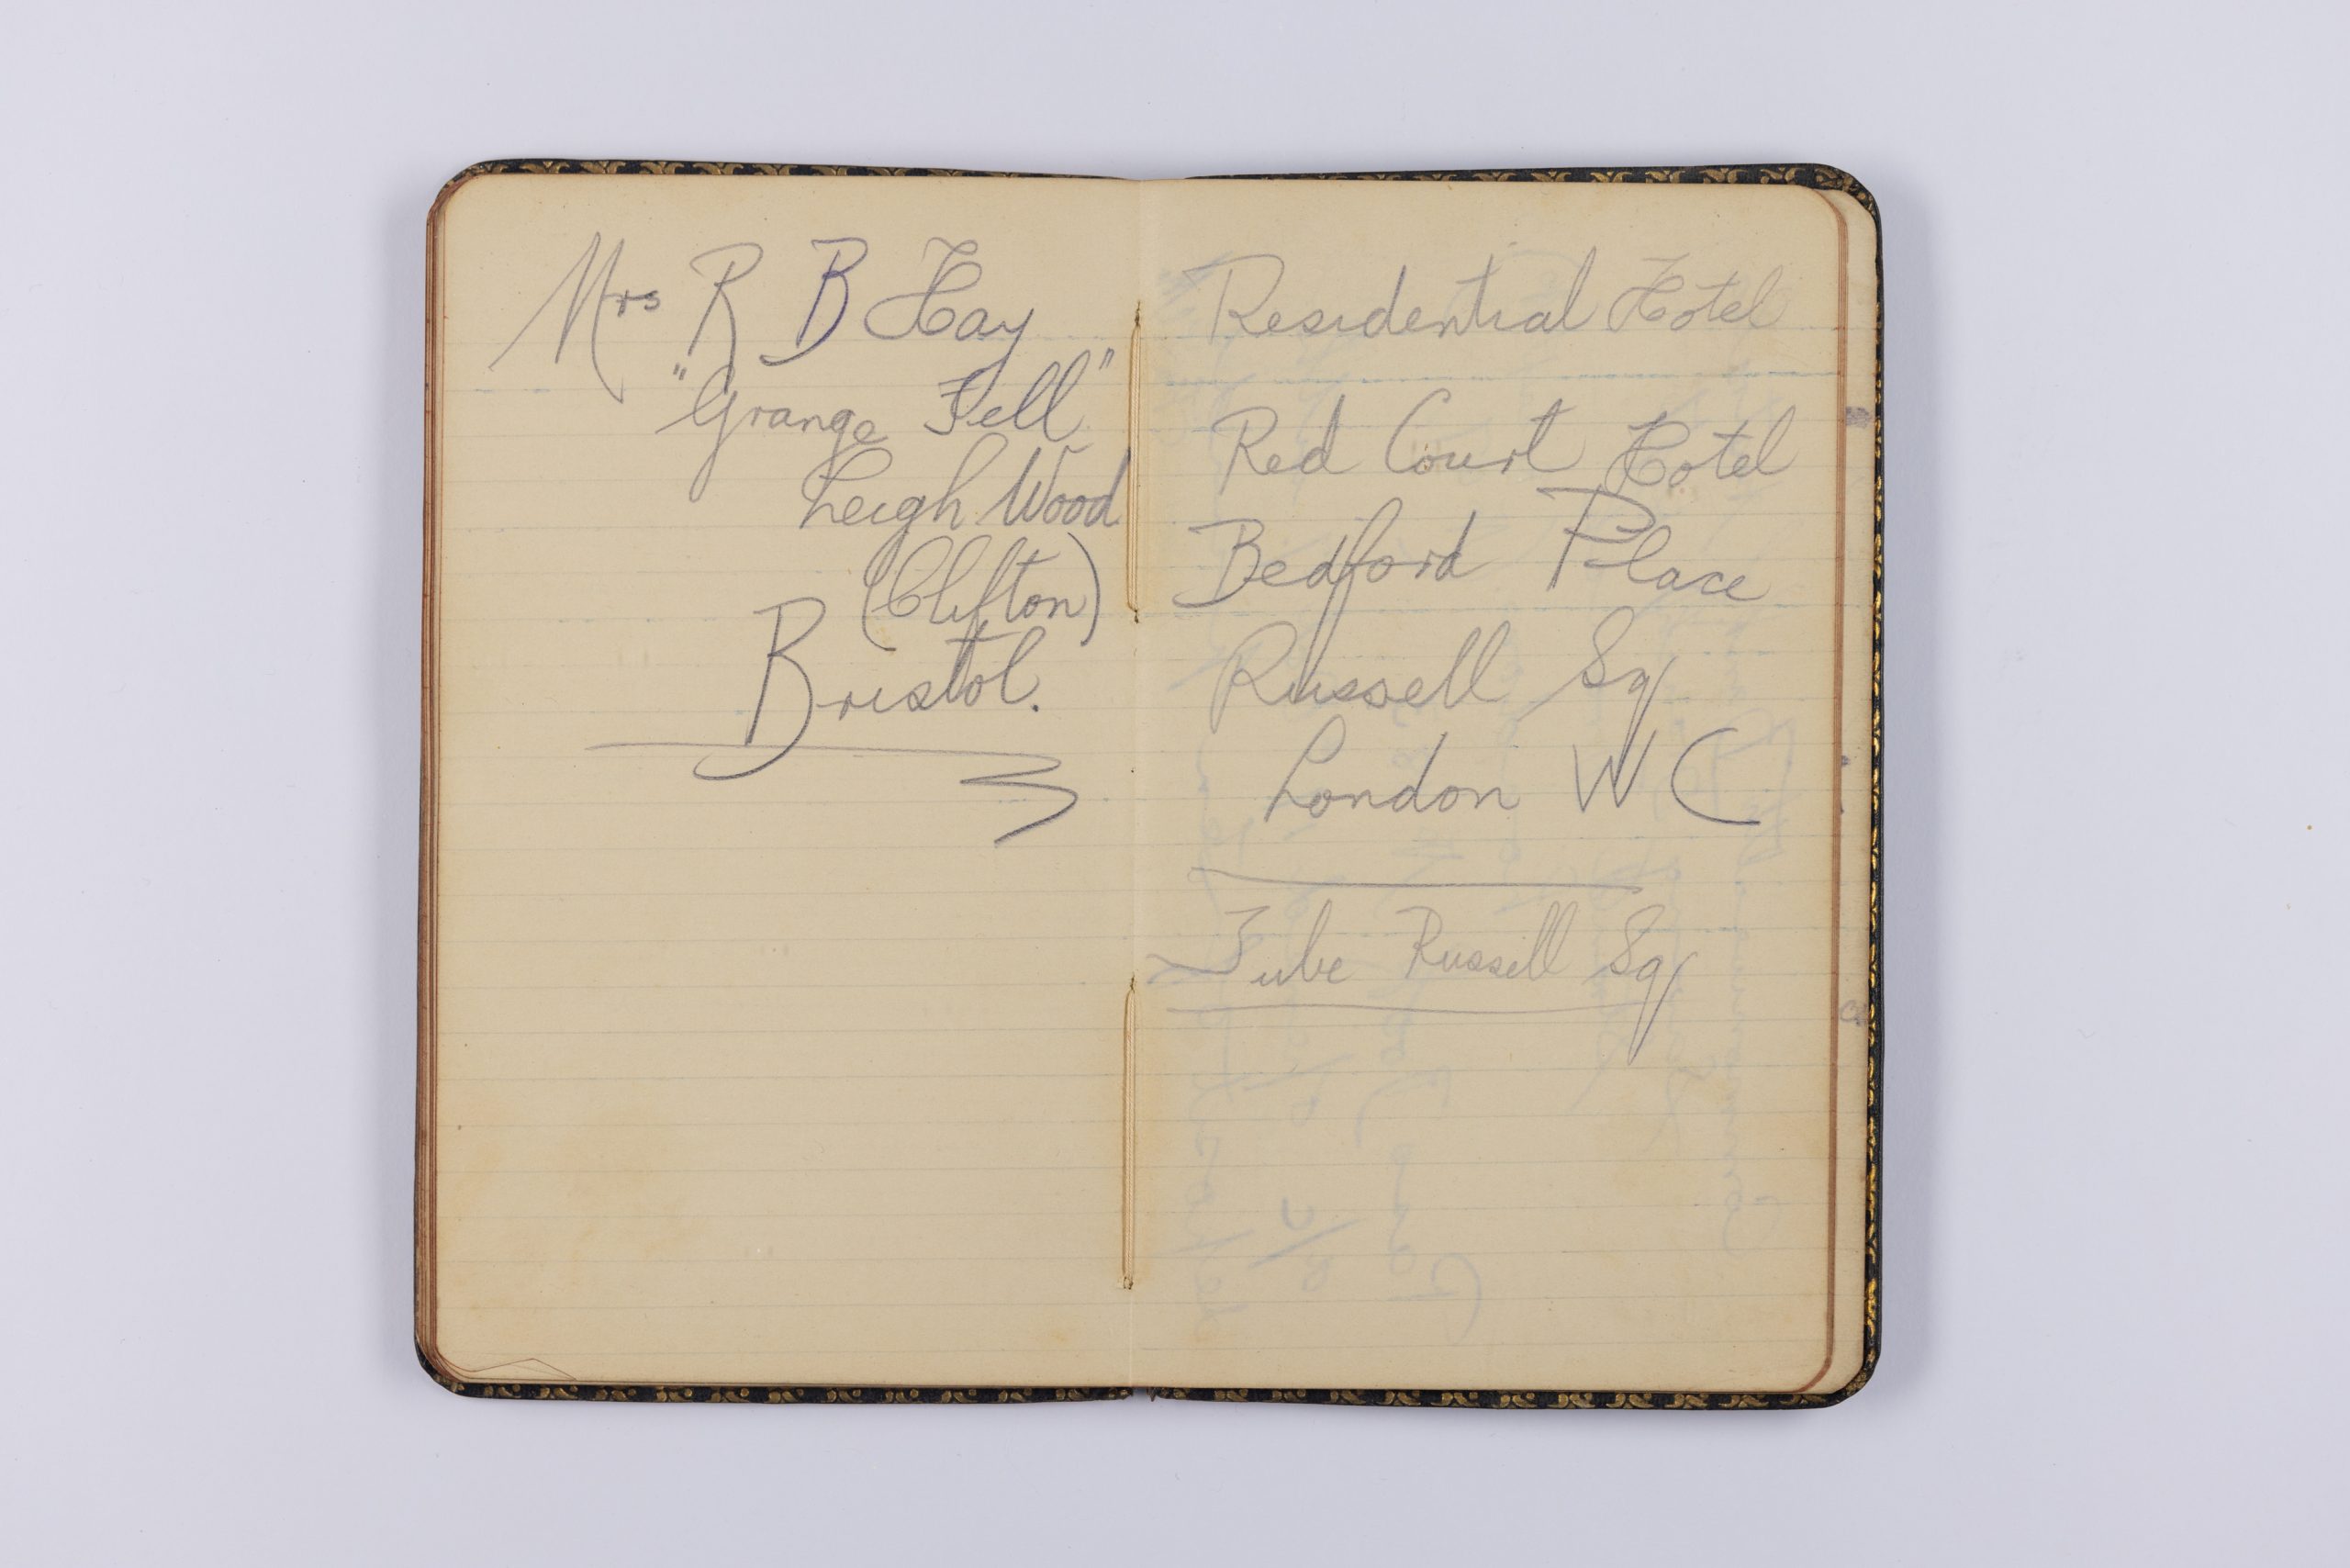 Mrs R B Hay
"Grange Fell"
Leigh Wood
(Clifton)
Bristol.
Residential Hotel
Red Court Hotel
Bedford Place
Russell Sq
London W C
Tube Russell Sq